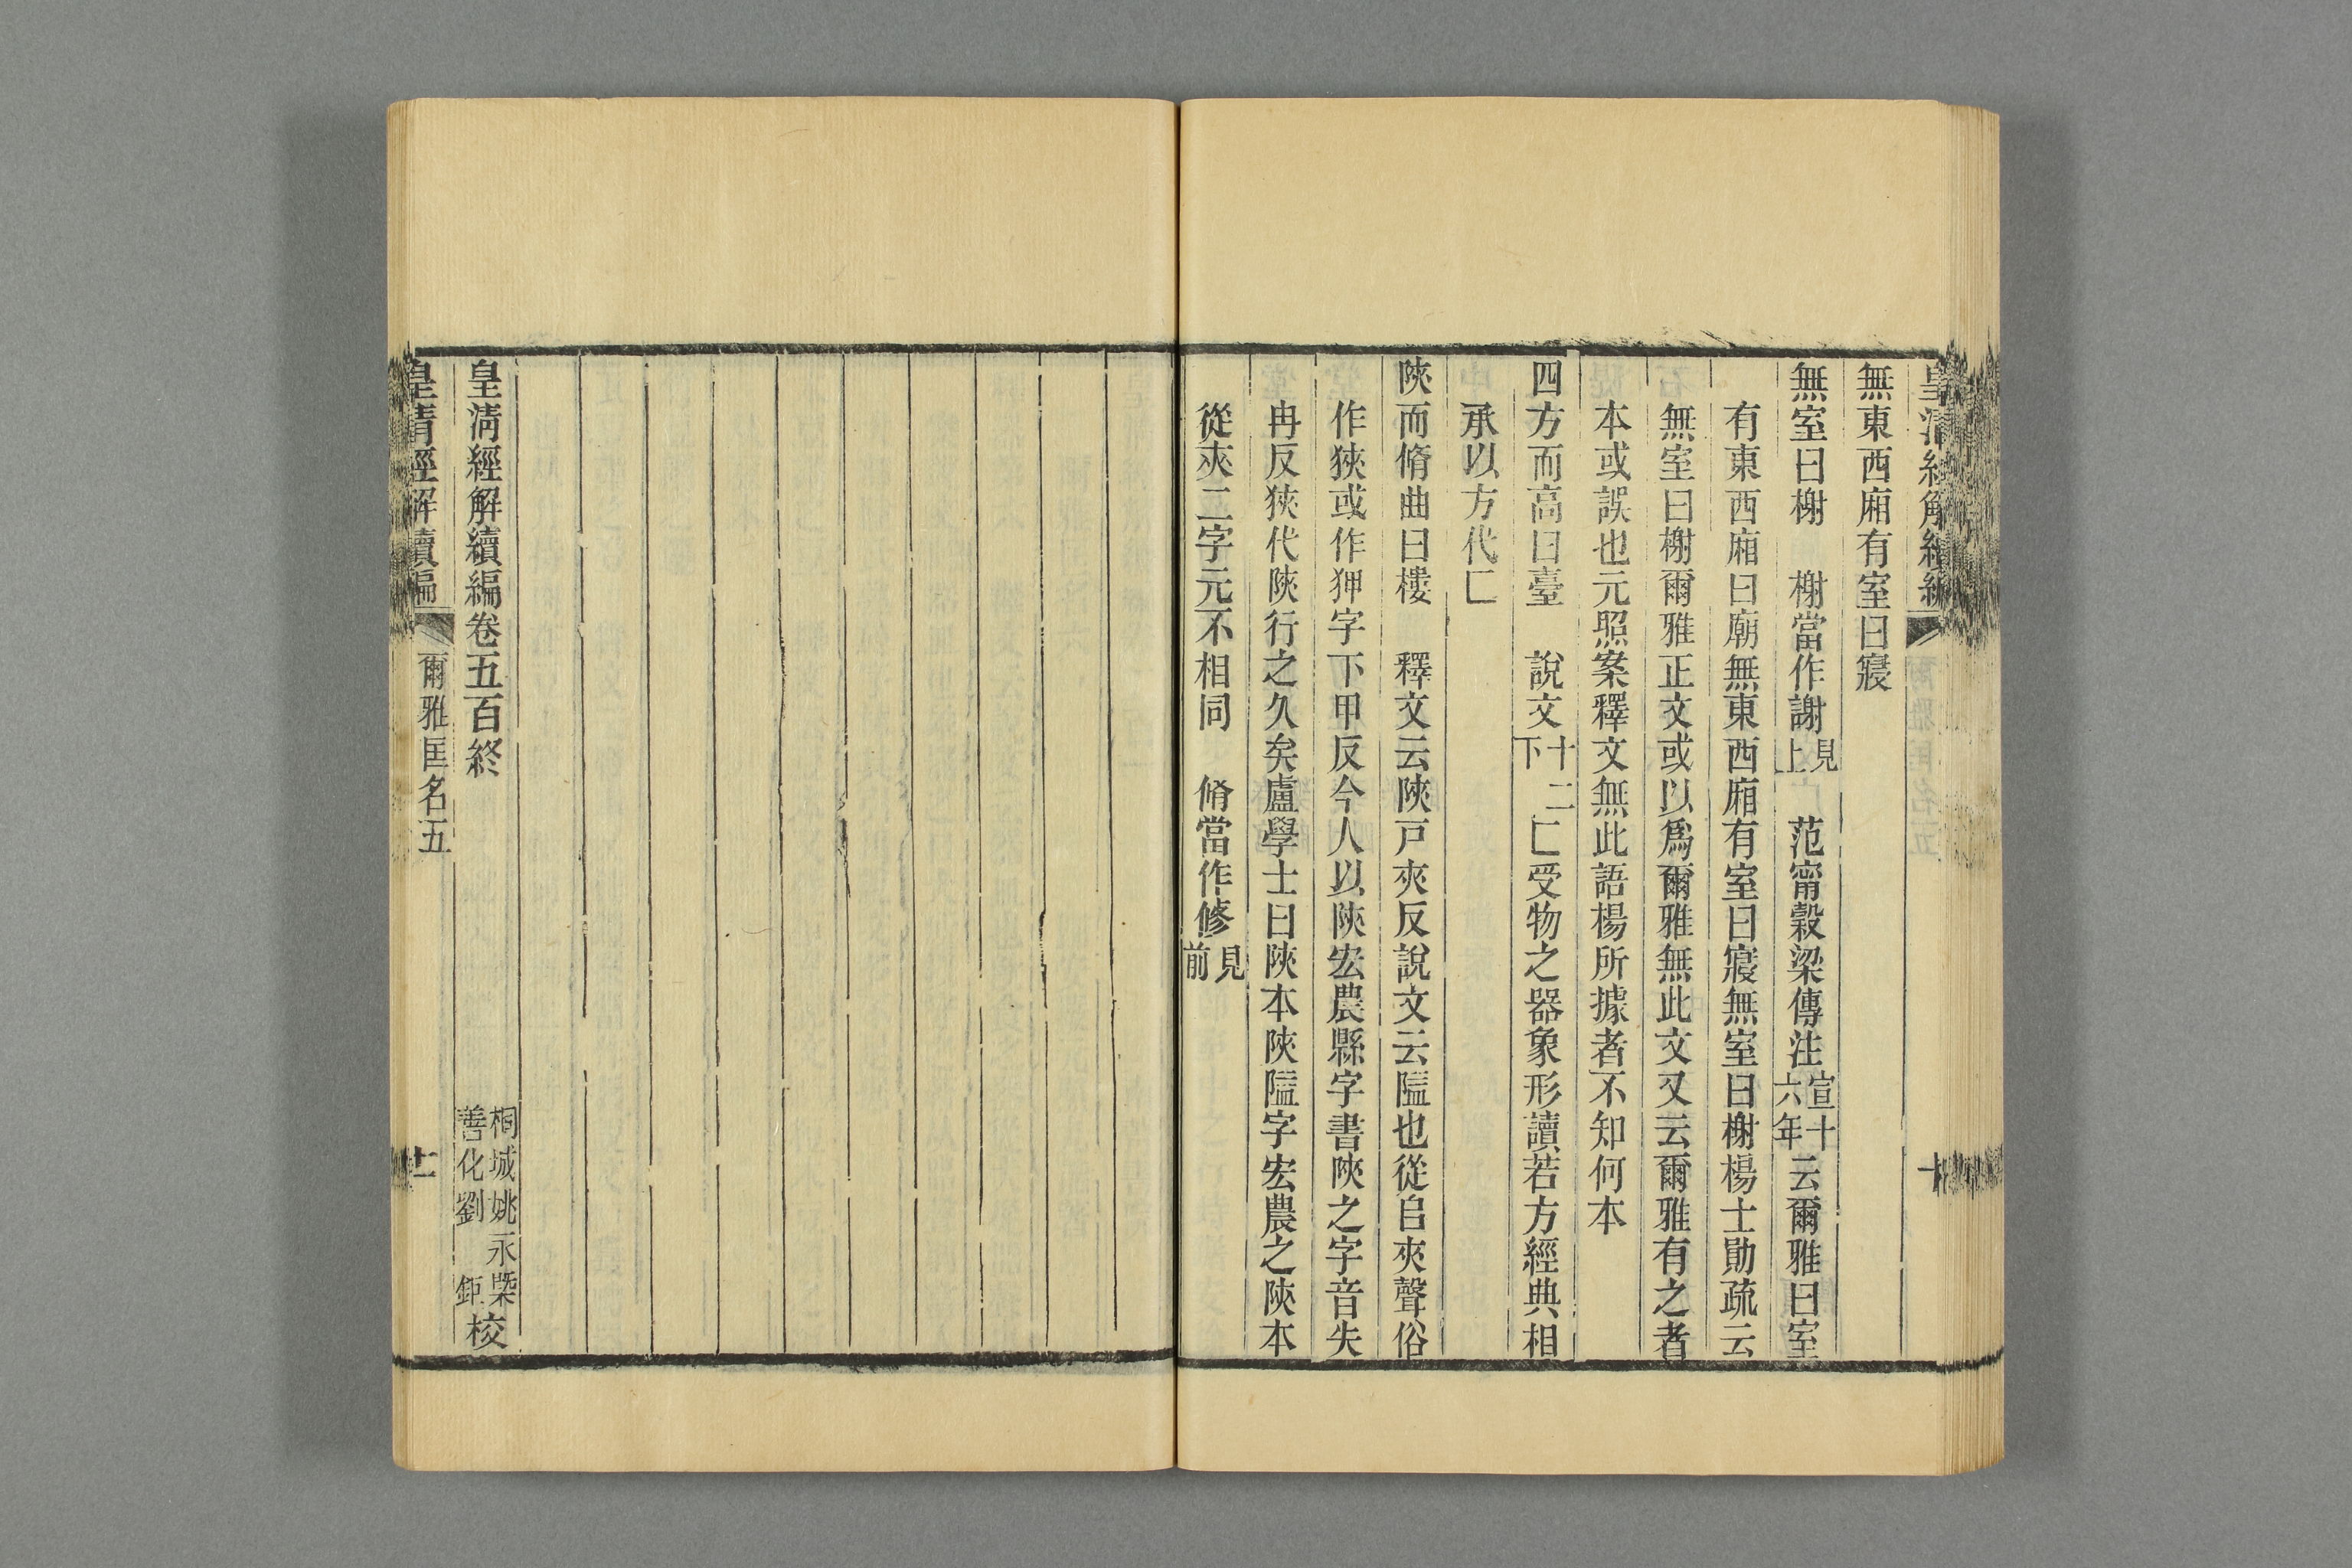 無東西廂有室曰寢
無室曰榭　榭當作謝見上　范甯穀梁傳注宣十六年云爾雅曰室
有東西廂曰廟無東西廂有室曰寢無室曰榭楊士勛疏云
無室曰榭爾雅正文或以爲爾雅無此文又云爾雅有之者
本或誤也元照案釋文無此語楊所據者不知何本
四方而高曰臺　說文十二下匚受物之器象形讀若方經典相
承以方代匚
陜而脩曲曰樓　釋文云陜戸夾反說文云隘也從𨸏夾聲俗
作狹或作狎字下甲反今人以陜宏農縣字書陜之字音失
冉反狹代陜行之久矣盧學士曰陜本陜隘字宏農之陝本
從㚒二字元不相同　脩當作修見前
皇清經解續編卷五百終
桐城姚永㮣
善化劉鉅校
皇清經解續編　爾雅匡名五　十一